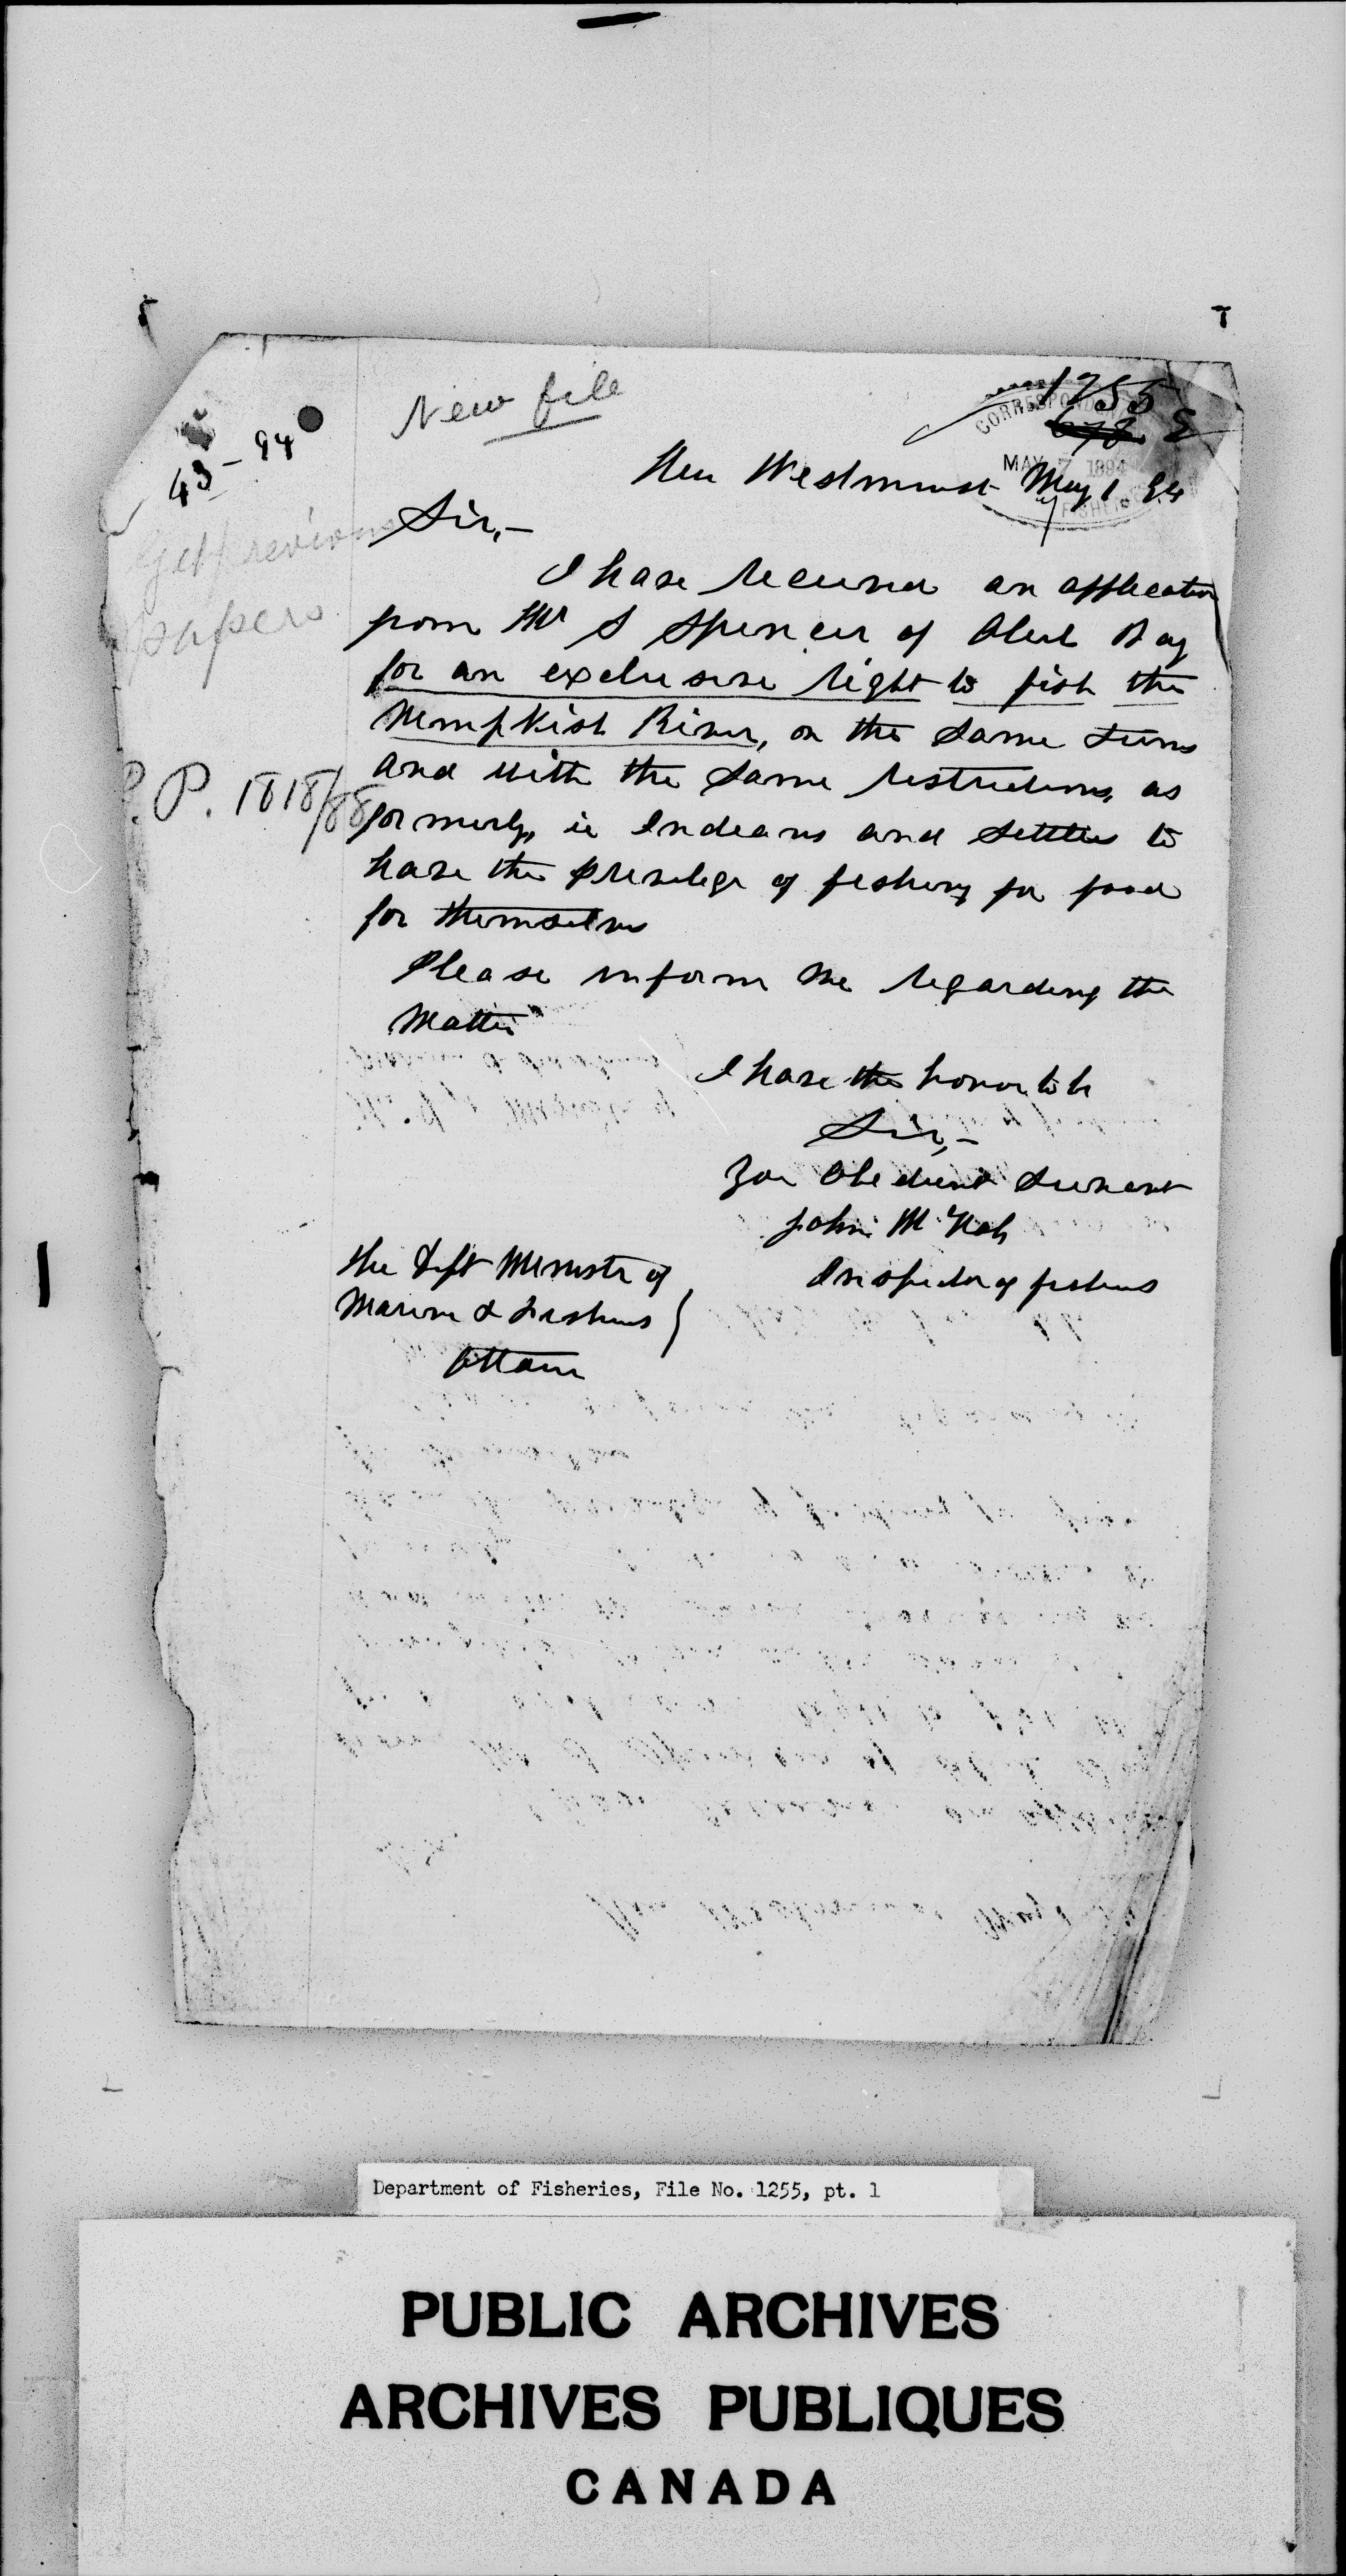 New file
1255
678 E
CORRESPONDENCE
MAY 7 1894
FISHERIES
43-94
New Westminst May 1 94
Get previous
papers
Sir,-
I have received an application
from Mr S Spencer of Alert Bay
for an exclusive right to fish the
Nempkish River, on the same terms
and with the same restrictions, as
P.P. 1818/88
formerly, ie Indians and settlers to
have the privilege of fishing for food
for themselves
Please inform me regarding the
matter
I have the honor to be
Sir,-
Your Obedient Servant
John McNab
Inspector of fisheries
The Dept Minister of
Marine & Fisheries
Ottawa
Department of Fisheries, File No. 1255, pt. 1
PUBLIC ARCHIVES
ARCHIVES PUBLIQUES
CANADA